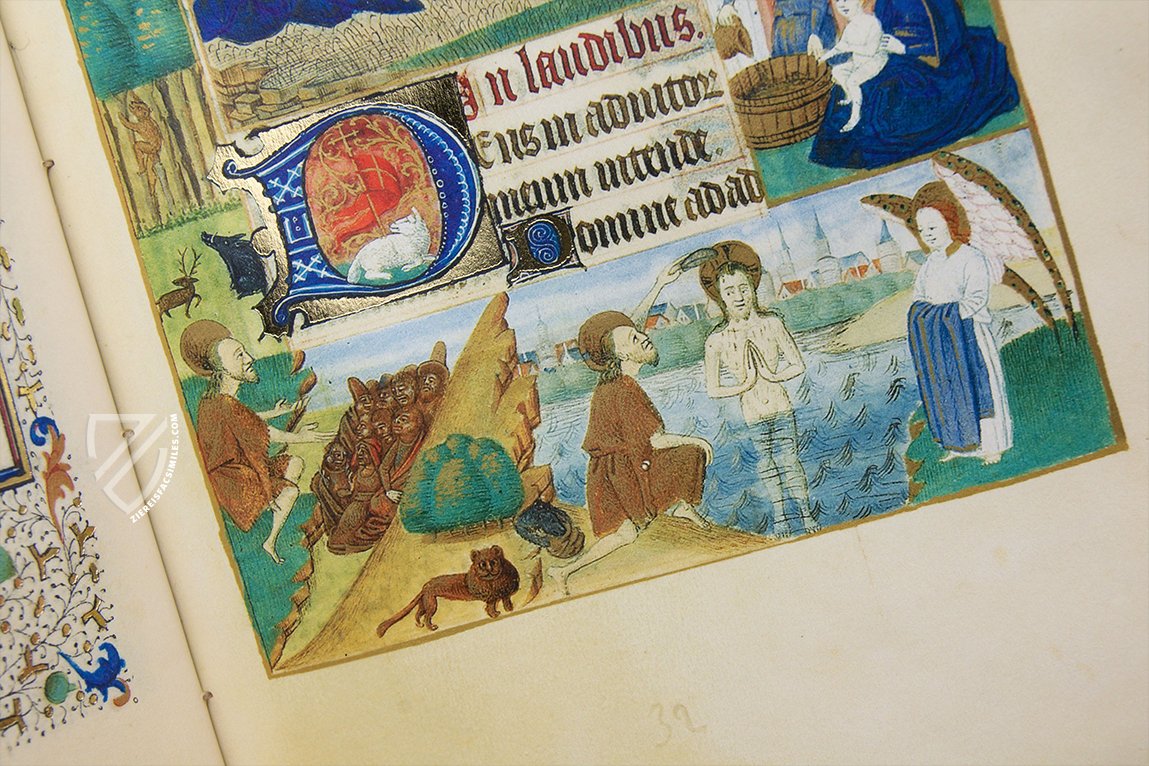 In laudibus.
Deus in adiutor
meum intende.
Domine ad ad
ZIEREISFACSIMILES.COM
32